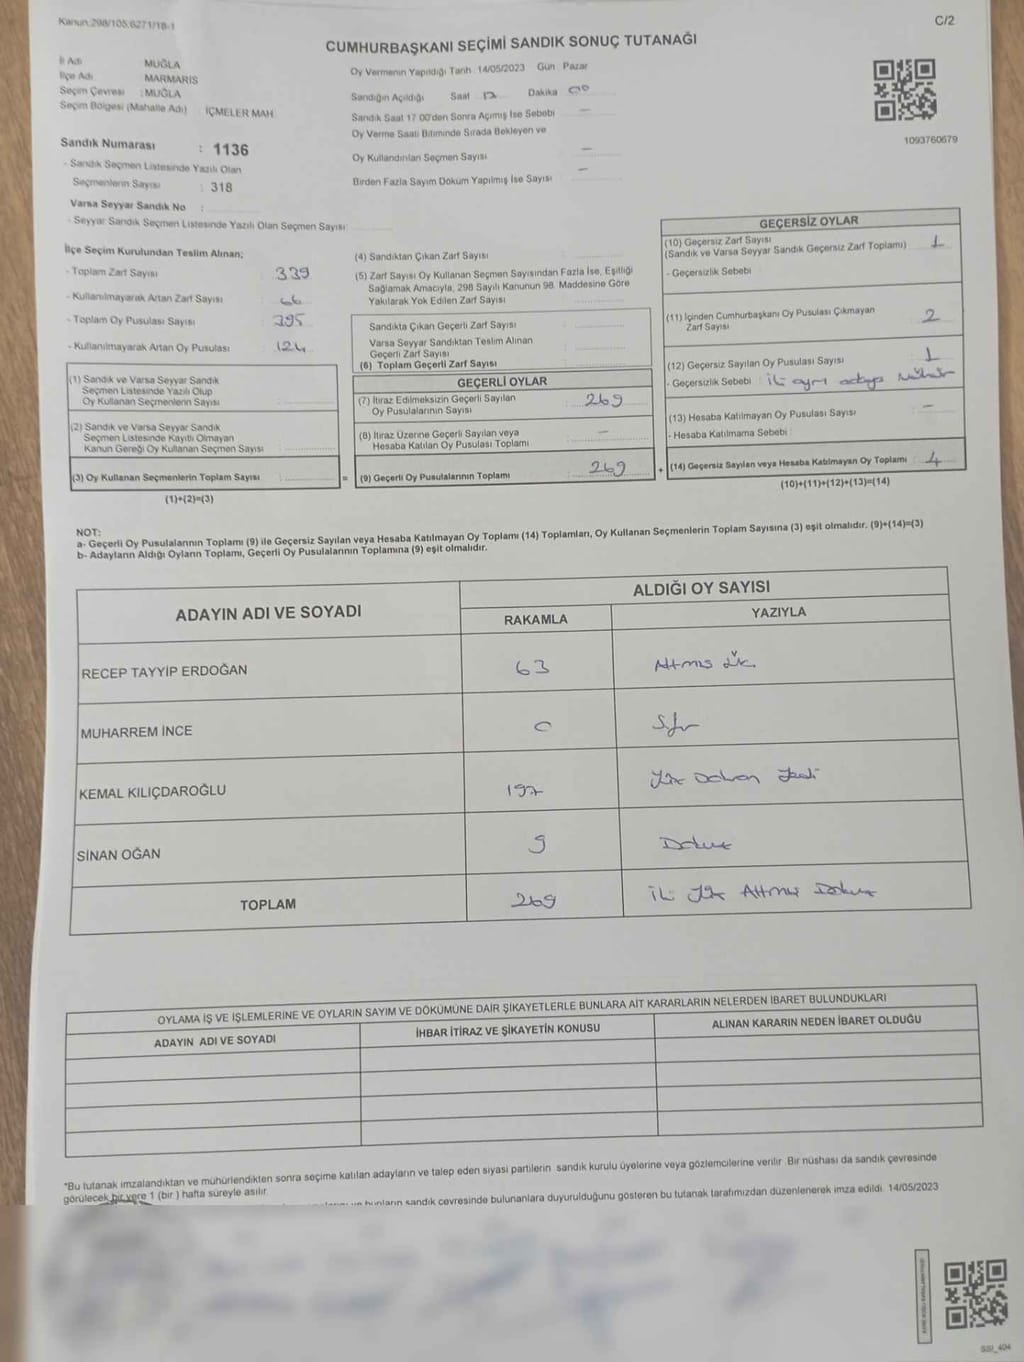 Kanun:298/105,6271/18-1
C/2
CUMHURBAŞKANI SEÇİMİ SANDIK SONUÇ TUTANAĞI
İl Adı MUĞLA
İlçe Adı MARMARİS
Seçim Çevresi : MUĞLA
Seçim Bölgesi (Mahalle Adı) : İÇMELER MAH.
Sandık Numarası : 1136
- Sandık Seçmen Listesinde Yazılı Olan
Seçmenlerin Sayısı : 318
Varsa Seyyar Sandık No :
- Seyyar Sandık Seçmen Listesinde Yazılı Olan Seçmen Sayısı
Oy Vermenin Yapıldığı Tarih 14/05/2023 Gün Pazar
Sandığın Açıldığı Saat 17 Dakika 00
Sandık Saat 17.00'den Sonra Açmış İse Sebebi —
Oy Verme Saati Bitiminde Sırada Bekleyen ve
Oy Kullandırılan Seçmen Sayısı —
Birden Fazla Sayım Döküm Yapılmış İse Sayısı —
1093760679
İlçe Seçim Kurulundan Teslim Alınan;
- Toplam Zarf Sayısı : 339
- Kullanılmayarak Artan Zarf Sayısı : 66
- Toplam Oy Pusulası Sayısı : 395
- Kullanılmayarak Artan Oy Pusulası : 124
(1) Sandık ve Varsa Seyyar Sandık
Seçmen Listesinde Yazılı Olup
Oy Kullanan Seçmenlerin Sayısı :
(2) Sandık ve Varsa Seyyar Sandık
Seçmen Listesinde Kayıtlı Olmayan
Kanun Gereği Oy Kullanan Seçmen Sayısı :
(3) Oy Kullanan Seçmenlerin Toplam Sayısı : =
(1)+(2)=(3)
(4) Sandıktan Çıkan Zarf Sayısı :
(5) Zarf Sayısı Oy Kullanan Seçmen Sayısından Fazla İse, Eşitliği
Sağlamak Amacıyla, 298 Sayılı Kanunun 98. Maddesine Göre
Yakılarak Yok Edilen Zarf Sayısı :
Sandıkta Çıkan Geçerli Zarf Sayısı :
Varsa Seyyar Sandıktan Teslim Alınan
Geçerli Zarf Sayısı :
(6) Toplam Geçerli Zarf Sayısı :
GEÇERLİ OYLAR
(7) İtiraz Edilmeksizin Geçerli Sayılan
Oy Pusulalarının Sayısı : 269
(8) İtiraz Üzerine Geçerli Sayılan veya
Hesaba Katılan Oy Pusulası Toplamı : —
(9) Geçerli Oy Pusulalarının Toplamı : 269 +
GEÇERSİZ OYLAR
(10) Geçersiz Zarf Sayısı
(Sandık ve Varsa Seyyar Sandık Geçersiz Zarf Toplamı) : 1
- Geçersizlik Sebebi :
(11) İçinden Cumhurbaşkanı Oy Pusulası Çıkmayan
Zarf Sayısı : 2
(12) Geçersiz Sayılan Oy Pusulası Sayısı : 1
- Geçersizlik Sebebi : iki ayrı adaya Mühür
(13) Hesaba Katılmayan Oy Pusulası Sayısı : —
- Hesaba Katılmama Sebebi :
(14) Geçersiz Sayılan veya Hesaba Katılmayan Oy Toplamı : 4
(10)+(11)+(12)+(13)=(14)
NOT:
a- Geçerli Oy Pusulalarının Toplamı (9) ile Geçersiz Sayılan veya Hesaba Katılmayan Oy Toplamı (14) Toplamları, Oy Kullanan Seçmenlerin Toplam Sayısına (3) eşit olmalıdır. (9)+(14)=(3)
b- Adayların Aldığı Oyların Toplamı, Geçerli Oy Pusulalarının Toplamına (9) eşit olmalıdır.
ADAYIN ADI VE SOYADI ALDIĞI OY SAYISI
RAKAMLA YAZIYLA
RECEP TAYYİP ERDOĞAN 63 Altmış Üç
MUHARREM İNCE 0 Sıfır
KEMAL KILIÇDAROĞLU 197 Yüz Doksan Yedi
SİNAN OĞAN 9 Dokuz
TOPLAM 269 İki Yüz Altmış Dokuz
OYLAMA İŞ VE İŞLEMLERİNE VE OYLARIN SAYIM VE DÖKÜMÜNE DAİR ŞİKAYETLERLE BUNLARA AİT KARARLARIN NELERDEN İBARET BULUNDUKLARI
ADAYIN ADI VE SOYADI İHBAR İTİRAZ VE ŞİKAYETİN KONUSU ALINAN KARARIN NEDEN İBARET OLDUĞU
*Bu tutanak imzalandıktan ve mühürlendikten sonra seçime katılan adayların ve talep eden siyasi partilerin sandık kurulu üyelerine veya gözlemcilerine verilir. Bir nüshası da sandık çevresinde
görülecek bir yere 1 (bir) hafta süreyle asılır.
bunların sandık çevresinde bulunanlara duyurulduğunu gösteren bu tutanak tarafımızdan düzenlenerek imza edildi. 14/05/2023
SSI_404